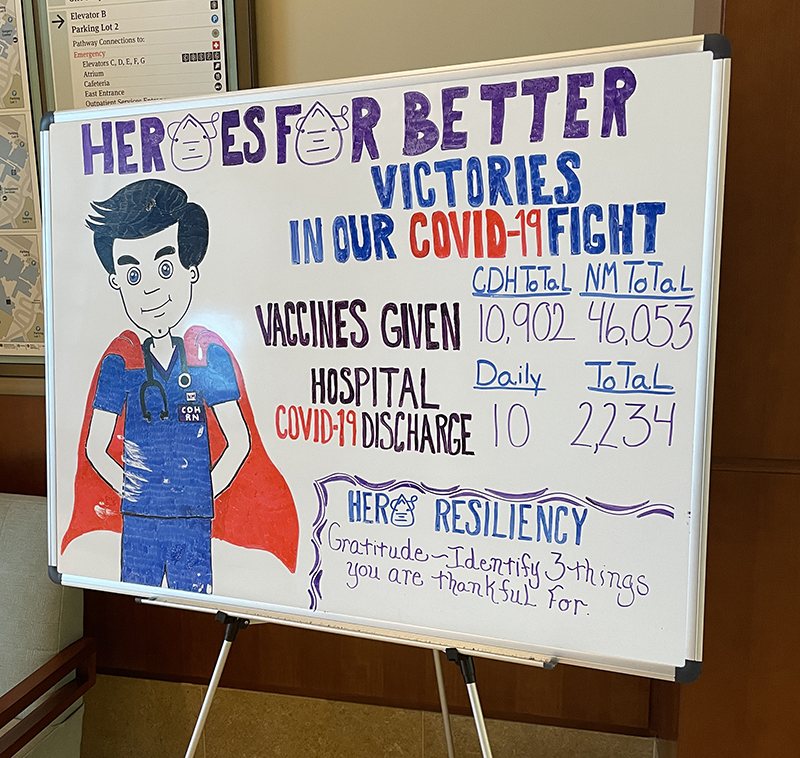 Elevator B
Parking Lot 2
Pathway Connections to:
Emergency
Elevators C, D, E, F, G
Atrium
Cafeteria
East Entrance
Outpatient Services Entrance
HEROES FOR BETTER
VICTORIES
IN OUR COVID-19 FIGHT
CDH ToTaL NM ToTaL
VACCINES GIVEN 10,902 46,053
Daily ToTaL
HOSPITAL
COVID-19 DISCHARGE 10 2,234
CDH
RN
HERO RESILIENCY
Gratitude - Identify 3 things
you are thankful for.